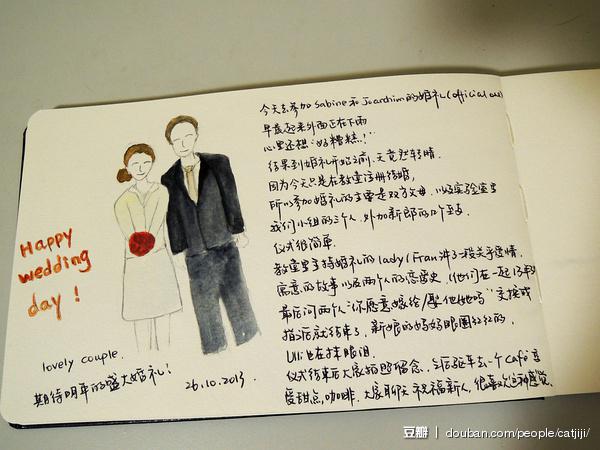 今天去参加 Sabine 和 Joachim的婚礼(official one)
早晨起来外面正在下雨
心里还想"好糟糕!"
结果到婚礼开始之前,天竟然转晴.
因为今天只是在教堂注册结婚,
所以参加婚礼的主要是双方父母,以及实验室里
我们小组的三个人,外加新郎的几个至友.
仪式很简单.
教堂里主持婚礼的 lady (Frau 讲了一段关于爱情,
寓意的故事以及两个人的恋爱史,(他们在一起13年)
幸后问两个人"你愿意嫁给/娶他/她吗"交换戒
指之后就结束了,新娘的妈妈眼圈红红的,
Ulli也在抹眼泪.
仪式结束后大家拍照留念,之后驱车去一个Café享
受甜点,咖啡.大家聊天 祝福新人,很喜欢这种感觉.
Happy
wedding
day !
lovely couple.
期待明年的盛大婚礼!
26.10.2013.
豆瓣 | douban.com/people/catjiji/